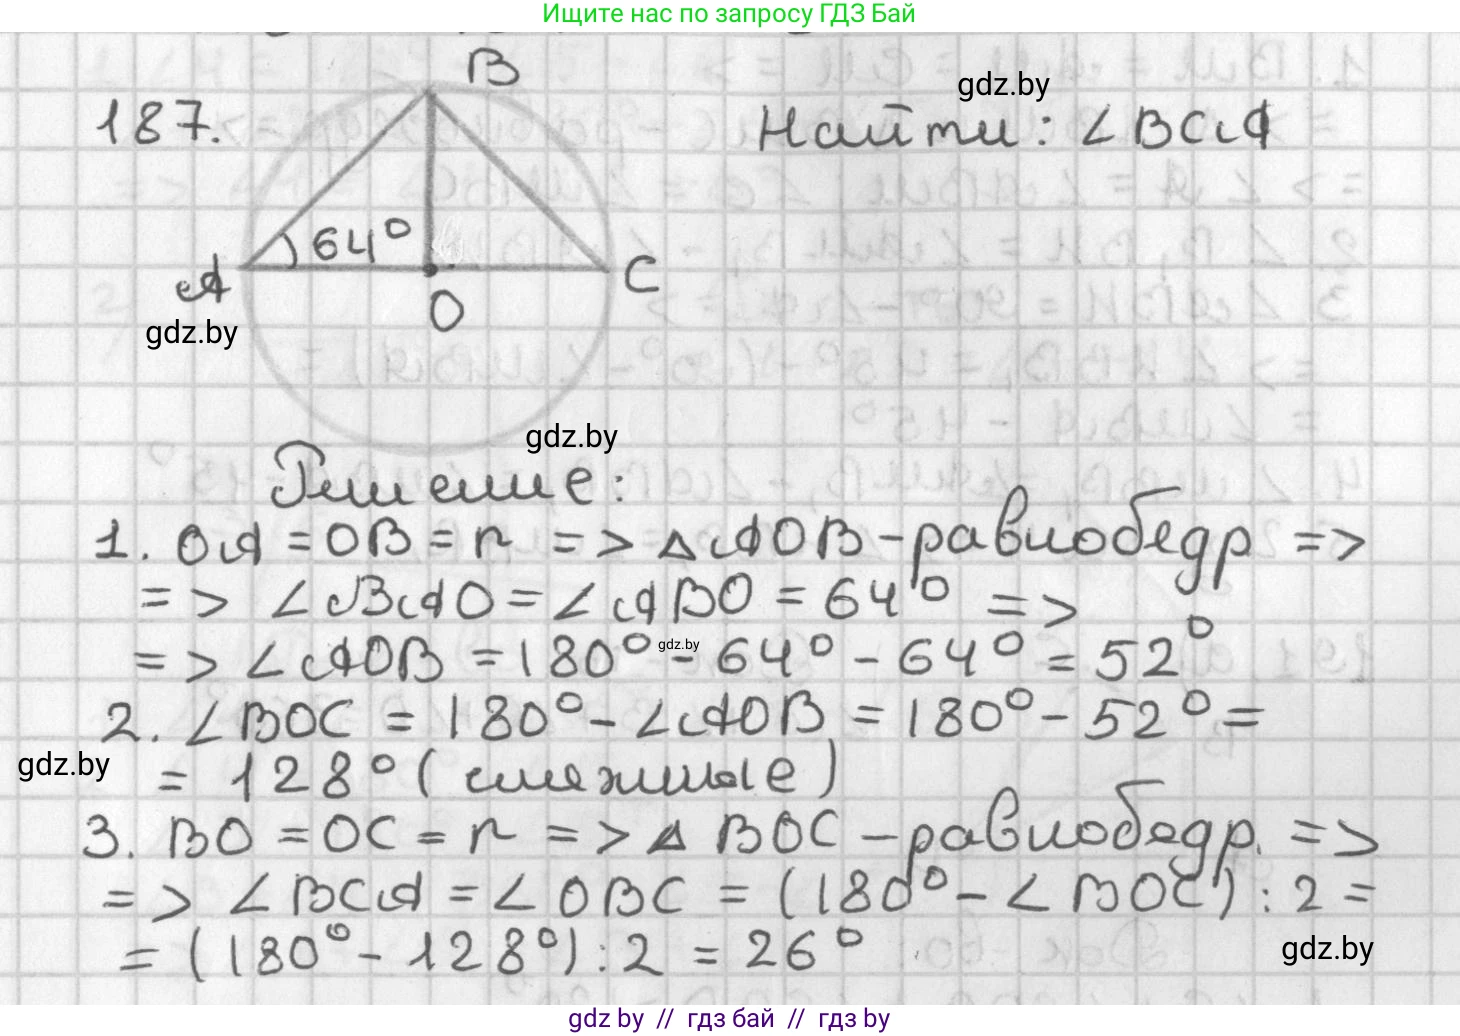 Ищите нас по запросу ГДЗ Бай
B
gdz.by
187.
Найти: ∠BCA
64°
A
C
O
gdz.by
gdz.by
Решение:
1. OA = OB = r => △AOB - равнобедр =>
=> ∠BAO = ∠ABO = 64° =>
gdz.by
=> ∠AOB = 180° - 64° - 64° = 52°
2. ∠BOC = 180° - ∠AOB = 180° - 52° =
gdz.by
= 128° (смежные)
3. BO = OC = r => △ BOC - равнобедр. =>
=> ∠BCA = ∠OBC = (180° - ∠BOC) : 2 =
= (180° - 128°) : 2 = 26°
gdz.by
gdz.by // гдз бай // гдз by